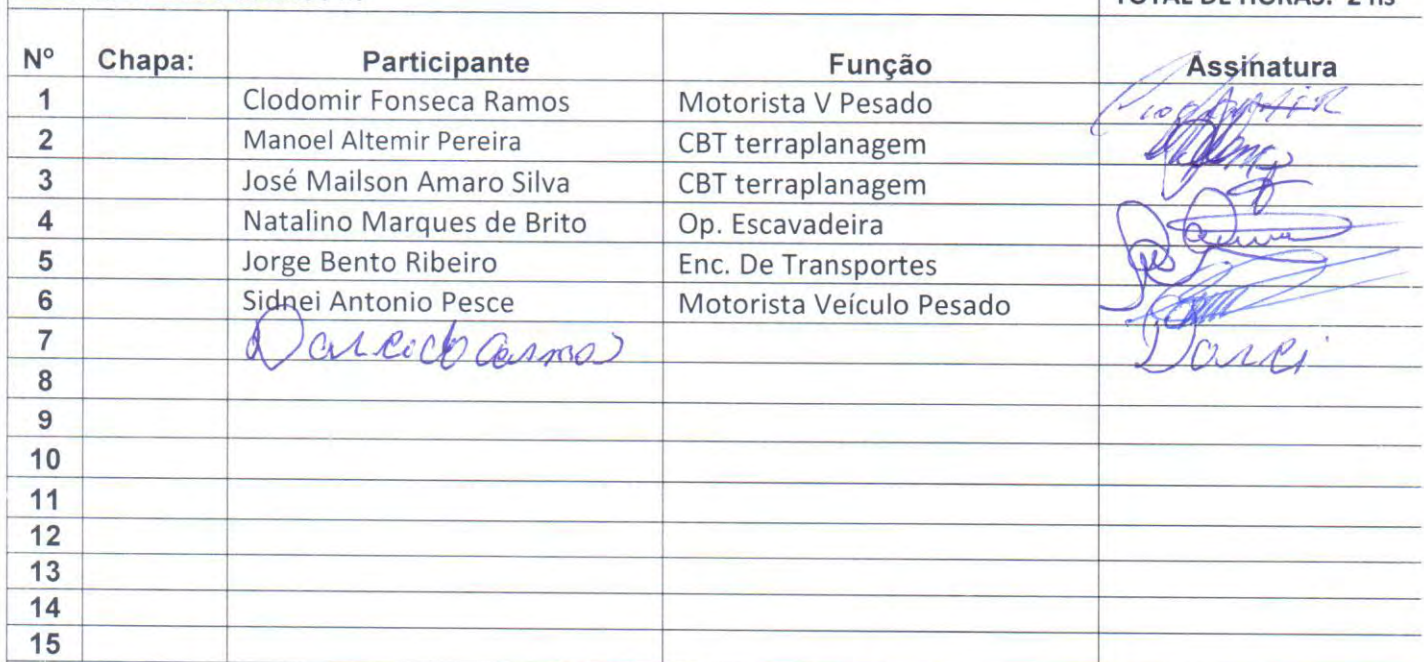 TOTAL DE HORAS: 2 hs
Nº Chapa: Participante Função Assinatura
1 Clodomir Fonseca Ramos Motorista V Pesado
2 Manoel Altemir Pereira CBT terraplanagem
3 José Mailson Amaro Silva CBT terraplanagem
4 Natalino Marques de Brito Op. Escavadeira
5 Jorge Bento Ribeiro Enc. De Transportes
6 Sidnei Antonio Pesce Motorista Veículo Pesado
7 Darci
8
9
10
11
12
13
14
15